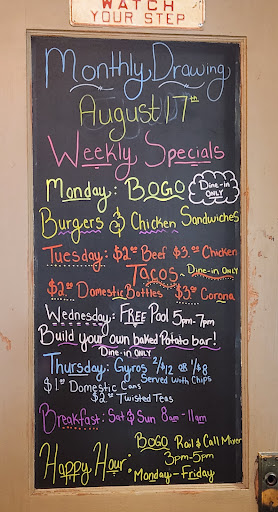 WATCH
YOUR STEP
Monthly Drawing
August 17th
Weekly Specials
Monday: BOGO Dine-in ONLY
Burgers & Chicken Sandwiches
Tuesday: $2.00 Beef $3.00 Chicken
Tacos - Dine-in ONLY
Domestic Bottles Corona
Wednesday: FREE Pool 5pm-7pm
Build your own baked Potato bar!
Dine-in ONLY
Thursday: Gyros 2/$12 or 1/$8
Served with Chips
Domestic Cans
Twisted Teas
Breakfast: Sat & Sun 8am-11am
BOGO Rail & Call Mixer
Happy Hour: 3pm-5pm
Monday-Friday